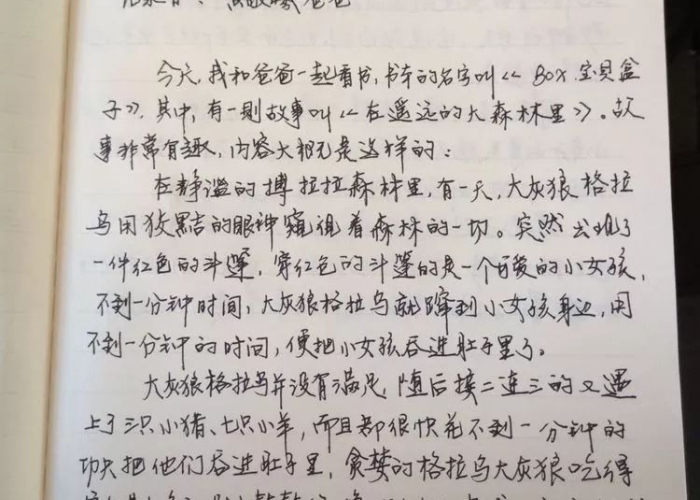 今天，我和爸爸一起看书，书本的名字叫《BOX宝贝盒
子》，其中，有一则故事叫《在遥远的大森林里》。故
事非常有趣，内容大概是这样的：
在静谧的搏拉拉森林里，有一天，大灰狼格拉
乌用狡黠的眼神窥视着森林的一切。突然出现了
一件红色的斗篷，穿红色的斗篷的是一个可爱的小女孩，
不到一分钟时间，大灰狼格拉乌就蹿到小女孩身边，用
不到一分钟的时间，便把小女孩吞进肚子里了。
大灰狼格拉乌并没有满足，随后接二连三的又遇
上了三只小猪、七只小羊，而且都很快花不到一分钟的
功夫把他们吞进肚子里，贪婪的格拉乌大灰狼吃得